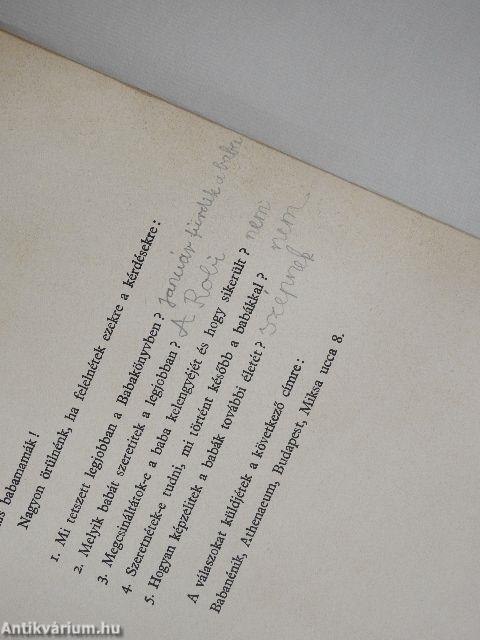 is babamamák!
Nagyon örülnénk, ha felelnétek ezekre a kérdésekre:
1. Mi tetszett legjobban a Babakönyvben? Január fürdik a baba
2. Melyik babát szeretitek a legjobban? A Robi
3. Megcsináltátok-e a baba kelengyéjét és hogy sikerült? nem
4. Szeretnétek-e tudni, mi történt később a babákkal? nem
5. Hogyan képzelitek a babák további életét? szépnek
A válaszokat küldjétek a következő címre:
Babanénik, Athenaeum, Budapest, Miksa ucca 8.
Antikvárium.hu